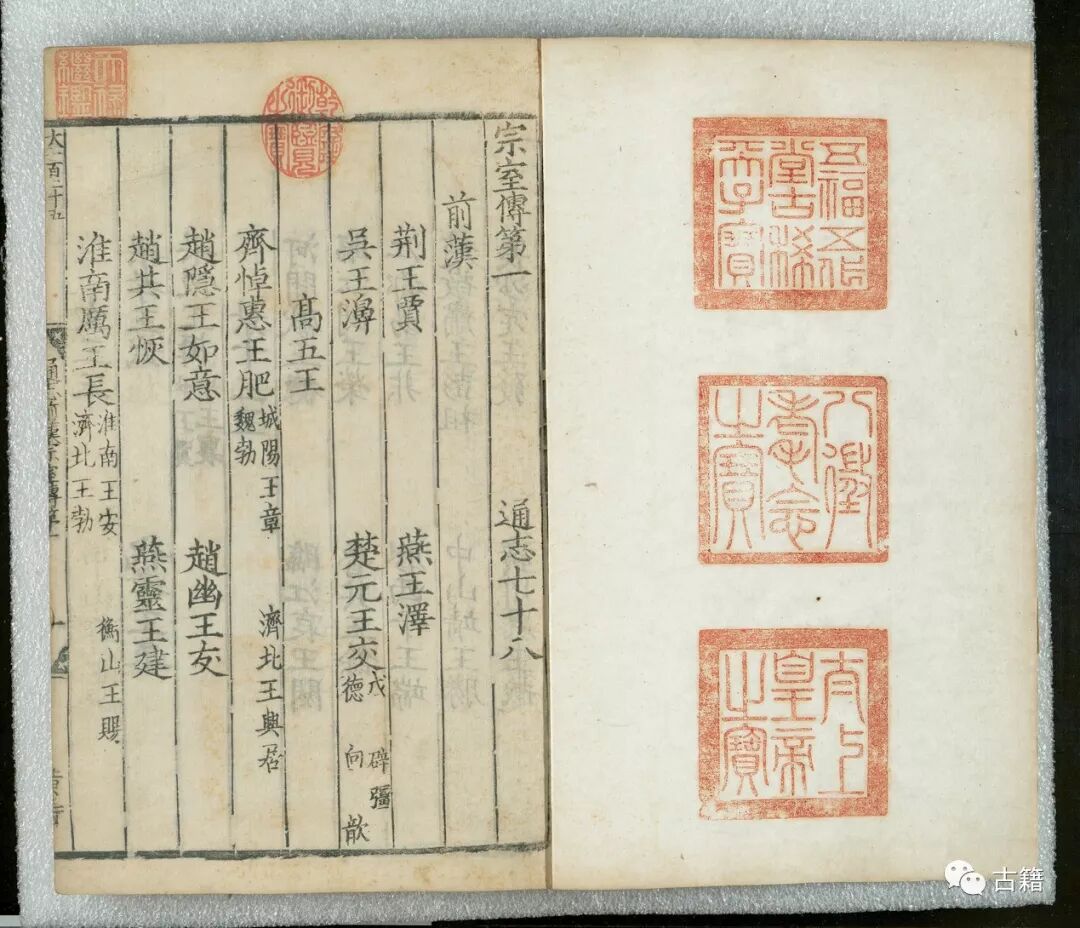 五福五代
堂古稀
天子寶
八徵
耄念
之寶
太上
皇帝
之寶
乾隆御覽之寶
天祿繼鑑
宗室傳第一 通志七十八
前漢
荊王賈 燕王澤
吳王濞 楚元王交 戊 辟彊 德 向 歆
高五王
齊悼惠王肥 城陽王章 濟北王興居 魏勃
趙隱王如意 趙幽王友
趙共王恢 燕靈王建
淮南厲王長 淮南王安 衡山王賜 濟北王勃
古籍